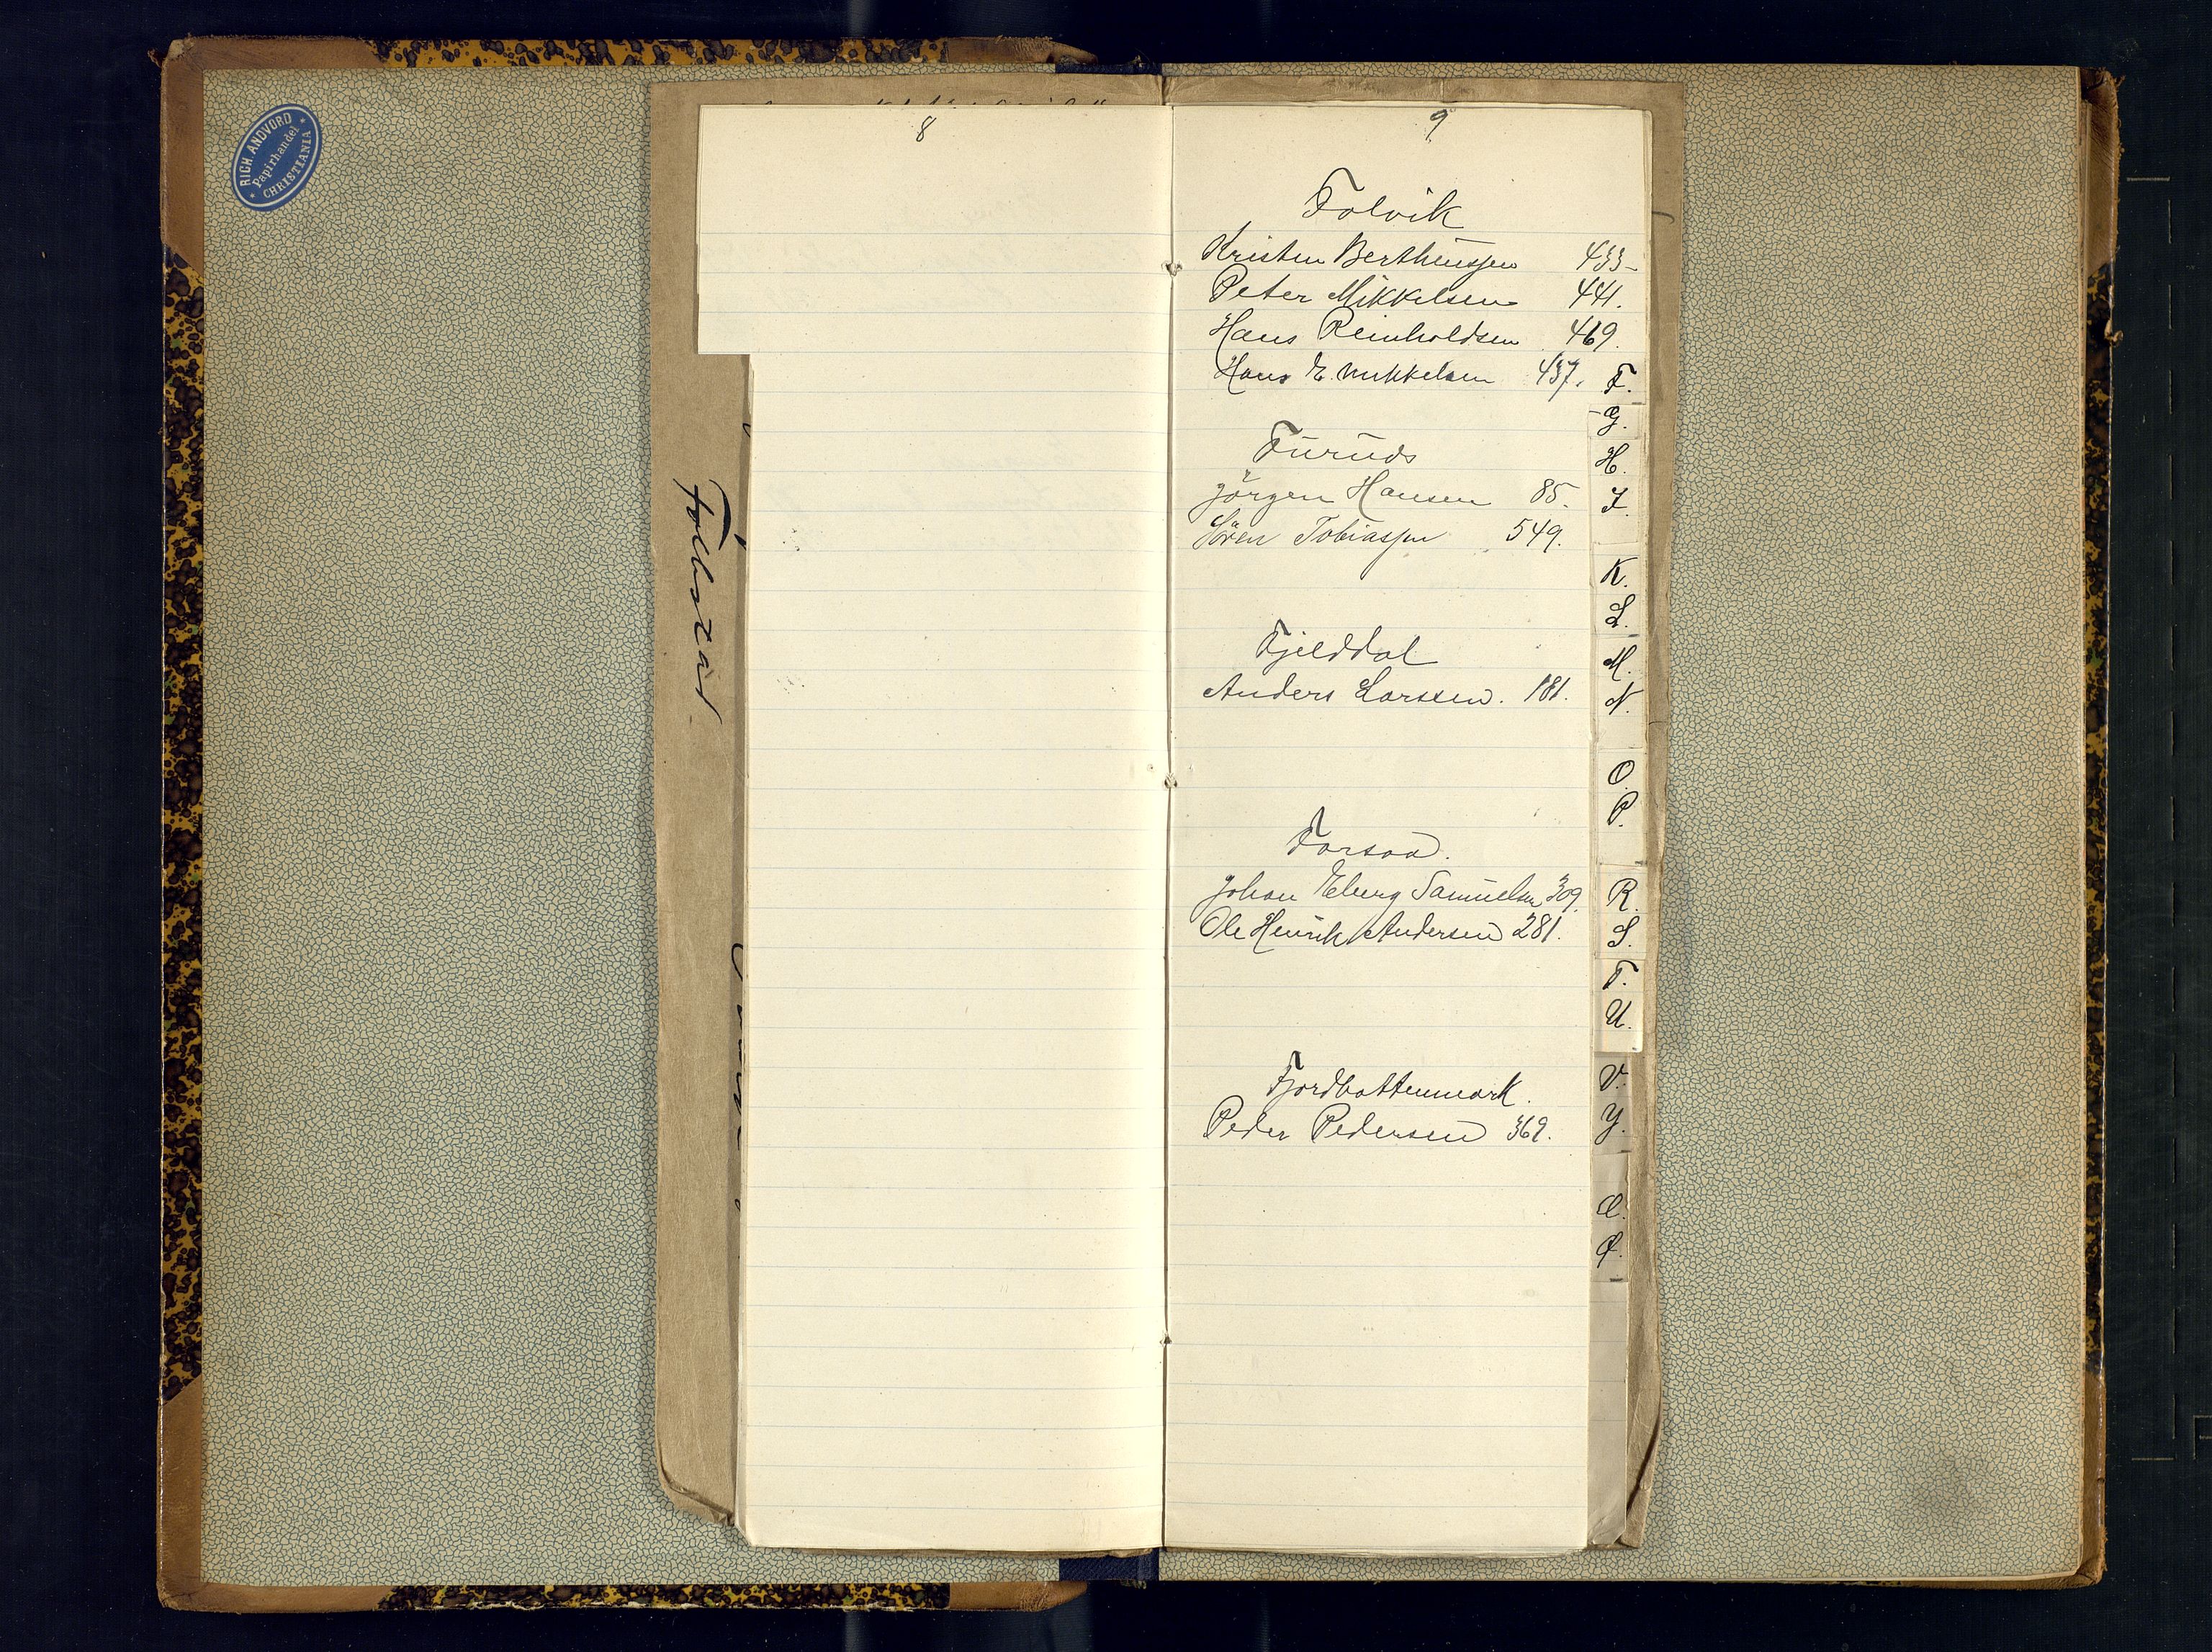 RICH. ANDVORD
Papirhandel
CHRISTIANIA
8
9
Folvik
Kristen Bertheussen 433-
Peter Mikkelsen 441.
Hans Reinholdsen 469.
Hans E. Mikkelsen 437.
Furuds
Jörgen Hansen 85.
Sören Tobiassen 549.
Fjelddal
Anders Larssen. 181.
Forsaa.
Johan Eberg Samuelsen 309.
Ole Henrik Andersen 281.
Fjordbottenmark.
Peder Pedersen 369.
F.
G.
H.
I.
K.
L.
M.
N.
O.
P.
R.
S.
T.
U.
V.
Y.
Æ.
Ø.